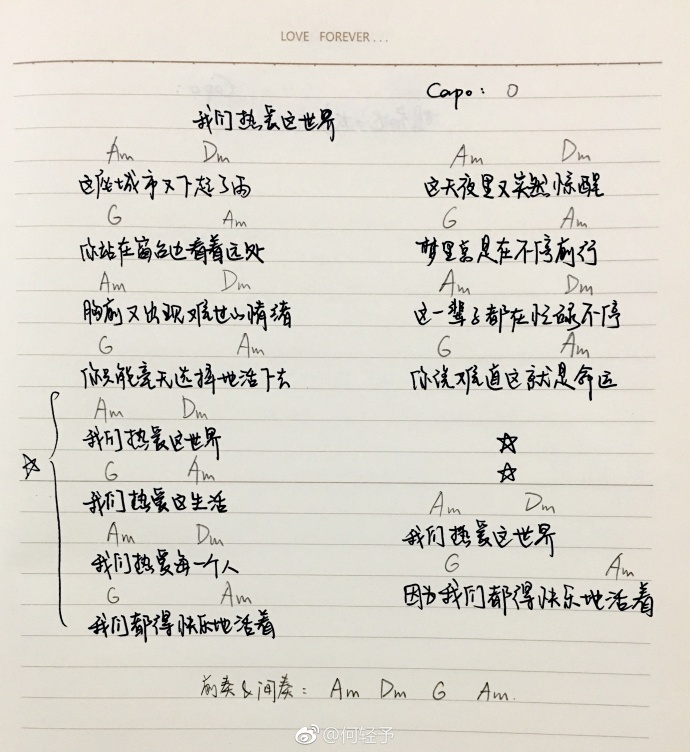 LOVE FOREVER...
Capo: 0
我们热爱这世界
Am Dm
这座城市又下起了雨
G Am
你站在窗台边看着远处
Am Dm
胸前又出现难过的情绪
G Am
你只能毫无选择地活下去
Am Dm
☆ 我们热爱这世界
G Am
我们热爱这生活
Am Dm
我们热爱每一个人
G Am
我们都得快乐地活着
Am Dm
这天夜里又突然惊醒
G Am
梦里总是在不停前行
Am Dm
这一辈子都在忙碌不停
G Am
你说难道这就是命运
☆
☆
Am Dm
我们热爱这世界
G Am
因为我们都得快乐地活着
前奏&间奏: Am Dm G Am.
@何轻予